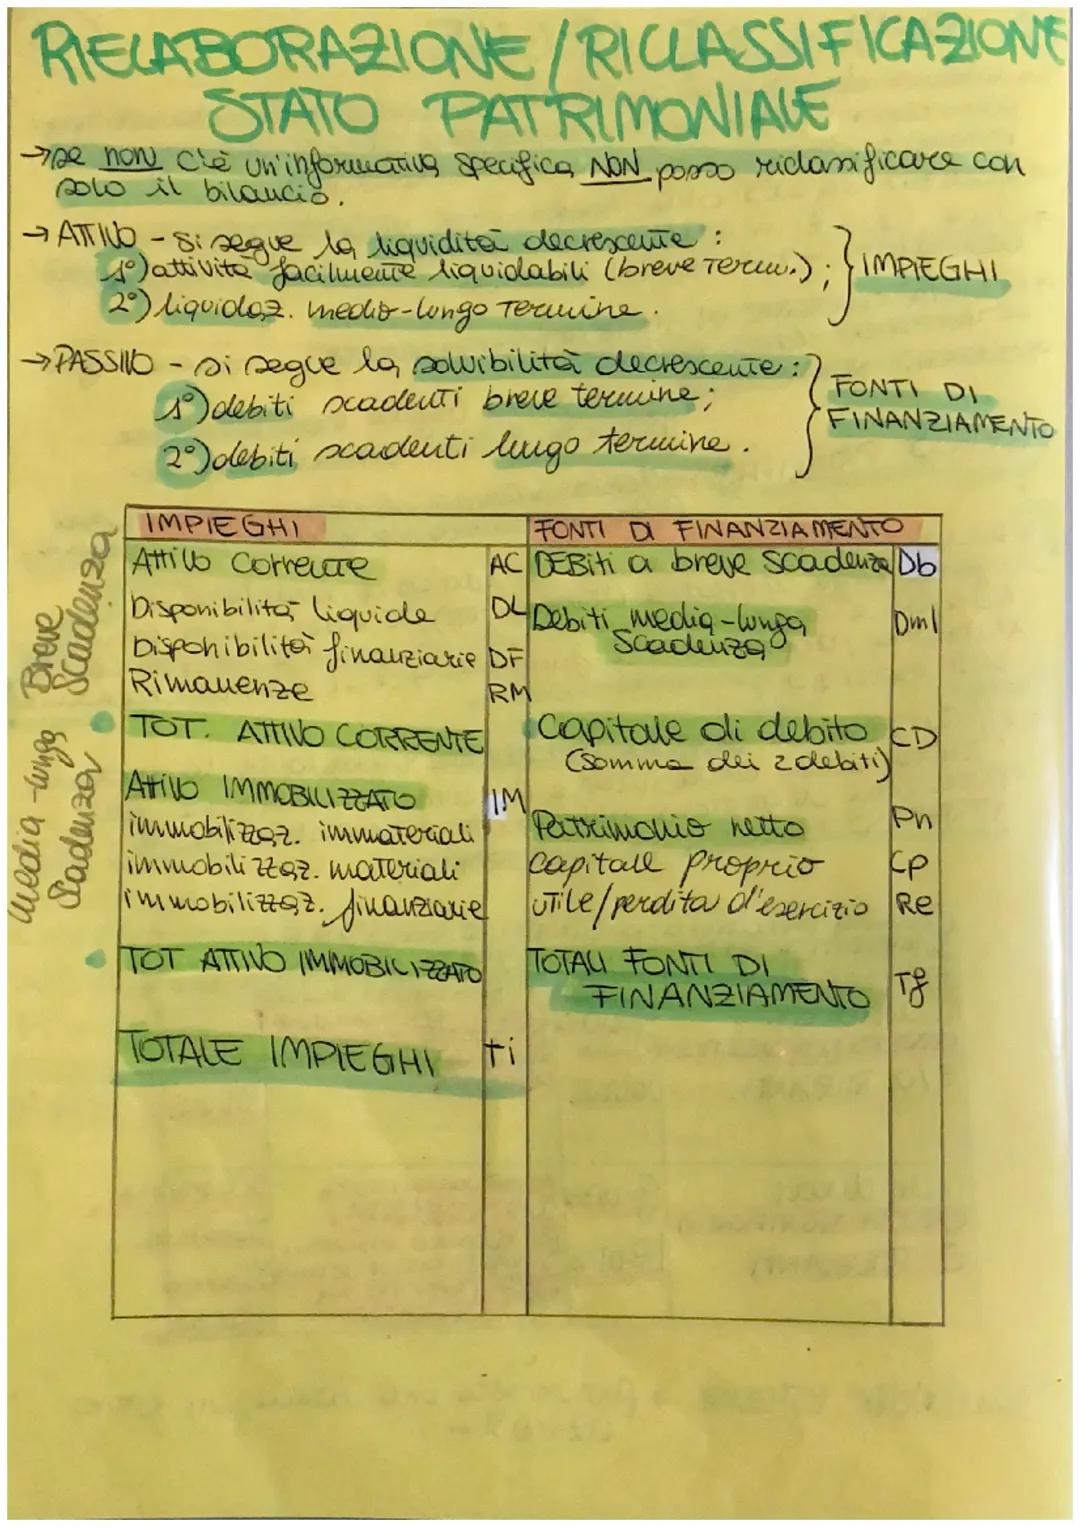 RIELABORAZIONE/RICLASSIFICAZIONE
STATO PATRIMONIALE
→se non c'è un'informativa specifica NON posso riclassificare con
solo il bilancio.
→ATTIVO - si segue la liquidità decrescente :
1°)attività facilmente liquidabili (breve term.) ;
2°) liquidaz. medio-lungo termine.
IMPIEGHI
→PASSIVO - si segue la solvibilità decrescente :
1°)debiti scadenti breve termine;
2°)debiti scadenti lungo termine.
FONTI DI
FINANZIAMENTO
Breve
Scadenza
Media-lunga
Scadenza
IMPIEGHI
Attivo Corrente AC
Disponibilità liquide DL
Disponibilità finanziarie DF
Rimanenze RM
TOT. ATTIVO CORRENTE
Attivo IMMOBILIZZATO IM
immobilizzaz. immateriali
immobilizzaz. materiali
immobilizzaz. finanziarie
TOT ATTIVO IMMOBILIZZATO
TOTALE IMPIEGHI Ti
FONTI DI FINANZIAMENTO
DEBiti a breve scadenza Db
Debiti media-lunga Dml
Scadenza
Capitale di debito CD
(somma dei 2 debiti)
Patrimonio netto Pn
capitale proprio Cp
utile/perdita d'esercizio Re
TOTALI FONTI DI
FINANZIAMENTO Tf